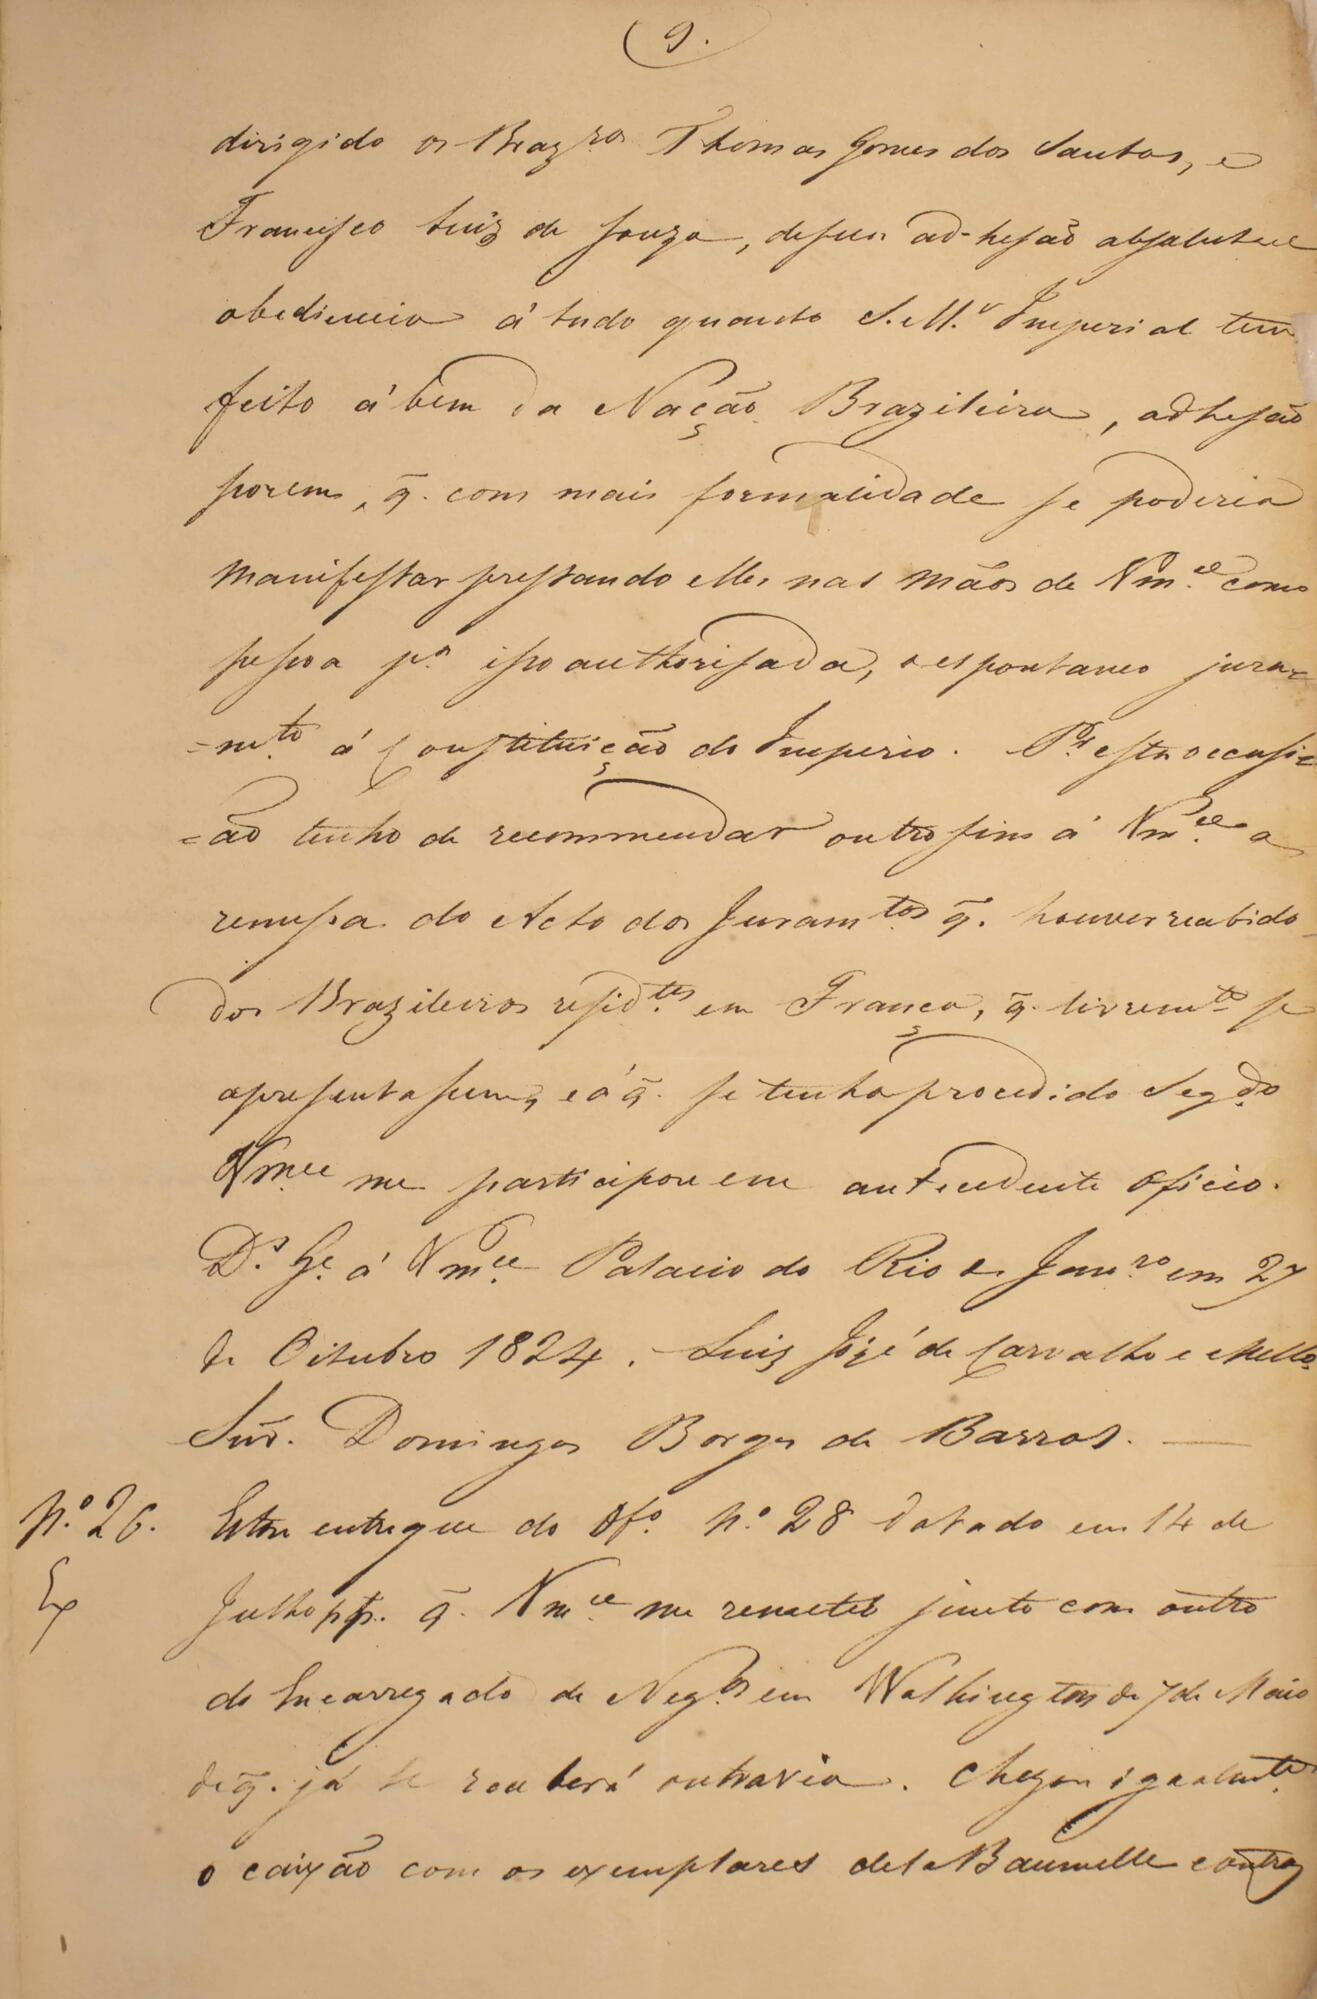 9.
dirigido os Braz.ros Thomas Gomes dos Santos, e
Francisco Luiz de Souza, de sua adhesão absoluta e
obediencia á tudo quanto S. M.e Imperial tem
feito á bem da Nação Brazileira, adhesão
porem, q̃. com mais formalidade se poderia
manifestar prestando elles nas mãos de Vm.ce como
pessoa p.a isso authorisada, o espontaneo jura-
=m.to á Constituição do Imperio. P.r esta occasi-
=ão tenho de recommendar outro sim á Vm.ce a
remessa do Acto dos Juram.tos q̃. houver recebido
dos Brazileiros resid.tes em França, q̃. livrem.te se
apresentassem, e á q̃. se tenha procedido Seg.do
Vm.ce me participou em antecedente oficio.
D.s G.e á Vm.ce Palacio do Rio de Jan.ro em 27
de Oitubro 1824. Luiz José de Carvalho e Mello
Snr̃. Domingos Borges de Barros.
N.o 26. Estou entregue do Of.o N.o 28 datado em 14 de
Ex Julho pp. q̃. Vm.ce me remeteo junto com outro
do Encarregado de Neg.os em Washington de 7 de Maio
de q̃. já se recebera outra via. Chegou igualm.te
o caixão com os exemplares de la Baumelle e outros